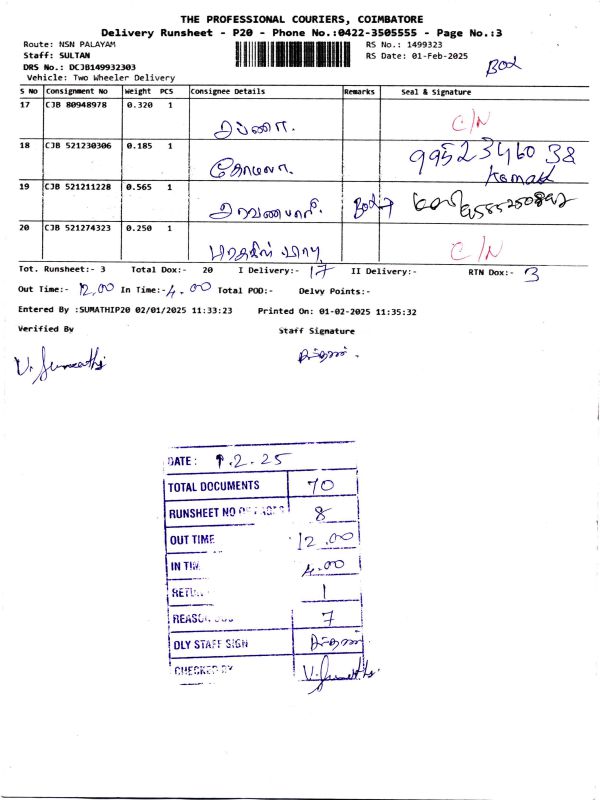 THE PROFESSIONAL COURIERS, COIMBATORE
Delivery Runsheet - P20 - Phone No.:0422-3505555 - Page No.:3
Route: NSN PALAYAM RS No.: 1499323
Staff: SULTAN RS Date: 01-Feb-2025
DRS No.: DCJB149932303
Vehicle: Two Wheeler Delivery
Box
S No Consignment No Weight PCS Consignee Details Remarks Seal & Signature
17 CJB 80948978 0.320 1
C/N
18 CJB 521230306 0.185 1
கோமலா. 99523 46038
Komal
19 CJB 521211228 0.565 1
சரவணபாரி. Box
20 CJB 521274323 0.250 1
C/N
Tot. Runsheet:- 3 Total Dox:- 20 I Delivery:- 17 II Delivery:- RTN Dox:- 3
Out Time:- 12.00 In Time:- 4.00 Total POD:- Delvy Points:-
Entered By :SUMATHIP20 02/01/2025 11:33:23 Printed On: 01-02-2025 11:35:32
Verified By Staff Signature
V. Sumathi
DATE: 1.2.25
TOTAL DOCUMENTS 70
RUNSHEET NO OF PAGES 8
OUT TIME 12.00
IN TIME 4.00
RETURN 1
REASON 7
DLY STAFF SIGN
CHECKED BY V. Sumathi